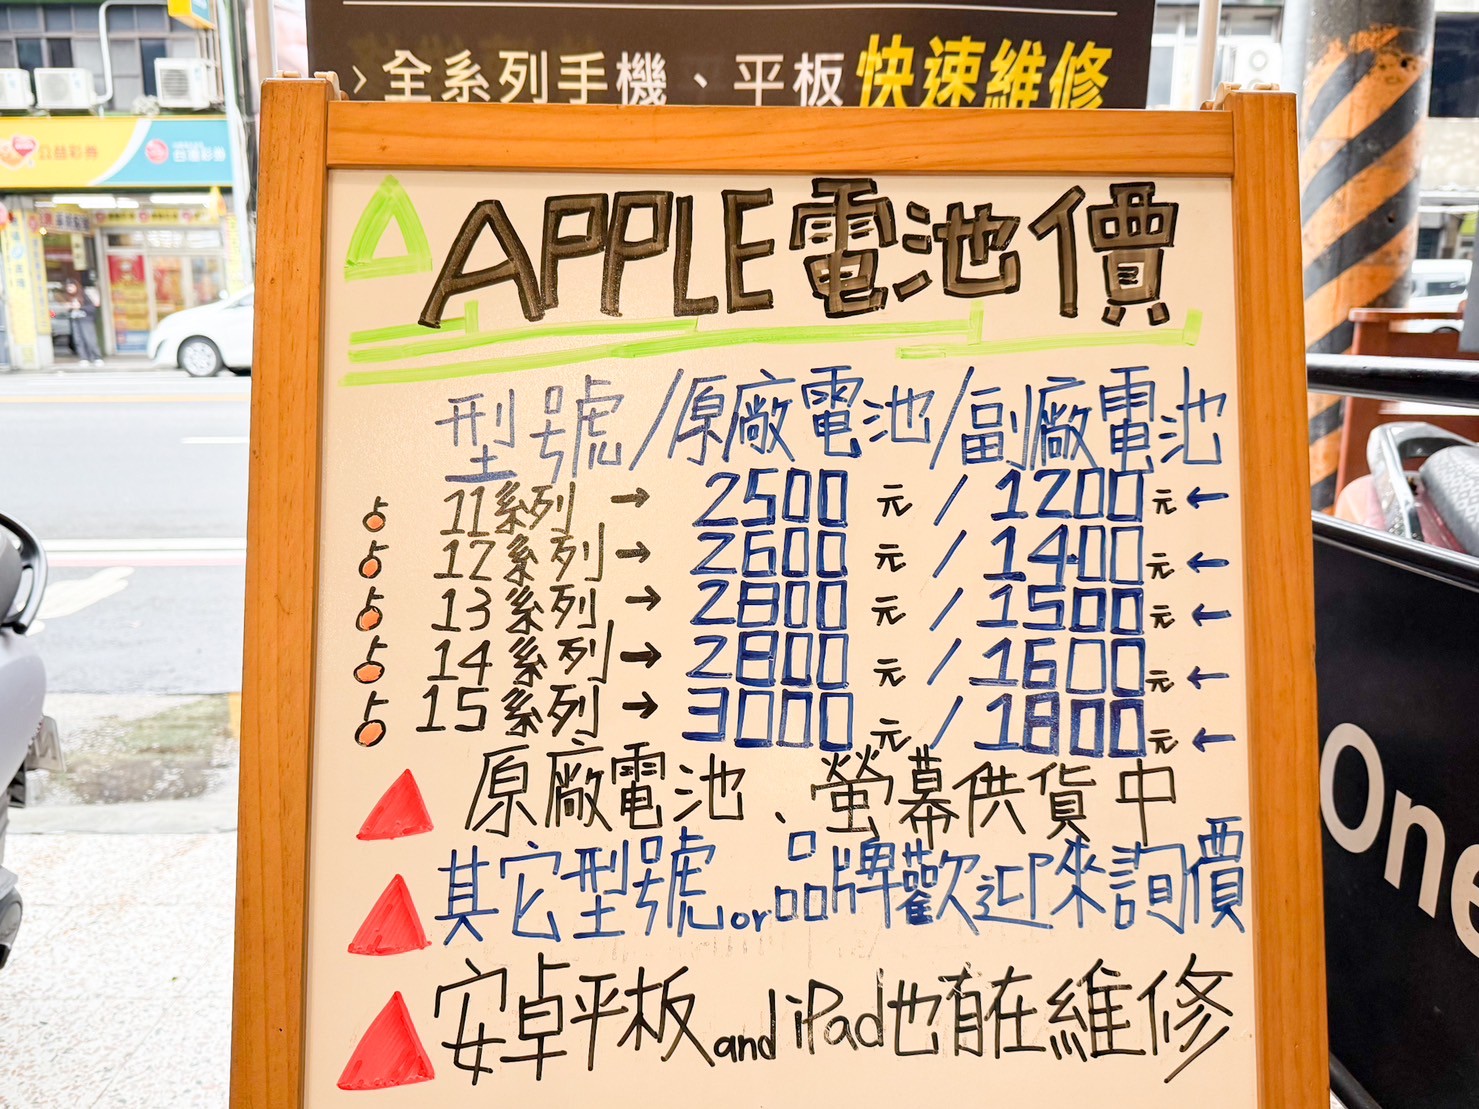 › 全系列手機、平板快速維修
APPLE電池價
型號/原廠電池/副廠電池
11系列 → 2500元/1200元←
12系列 → 2600元/1400元←
13系列 → 2800元/1500元←
14系列 → 2800元/1600元←
15系列 → 3000元/1800元←
原廠電池、螢幕供貨中
其它型號or品牌歡迎來詢價
安卓平板and iPad也有在維修
公益彩券
台灣彩券
One